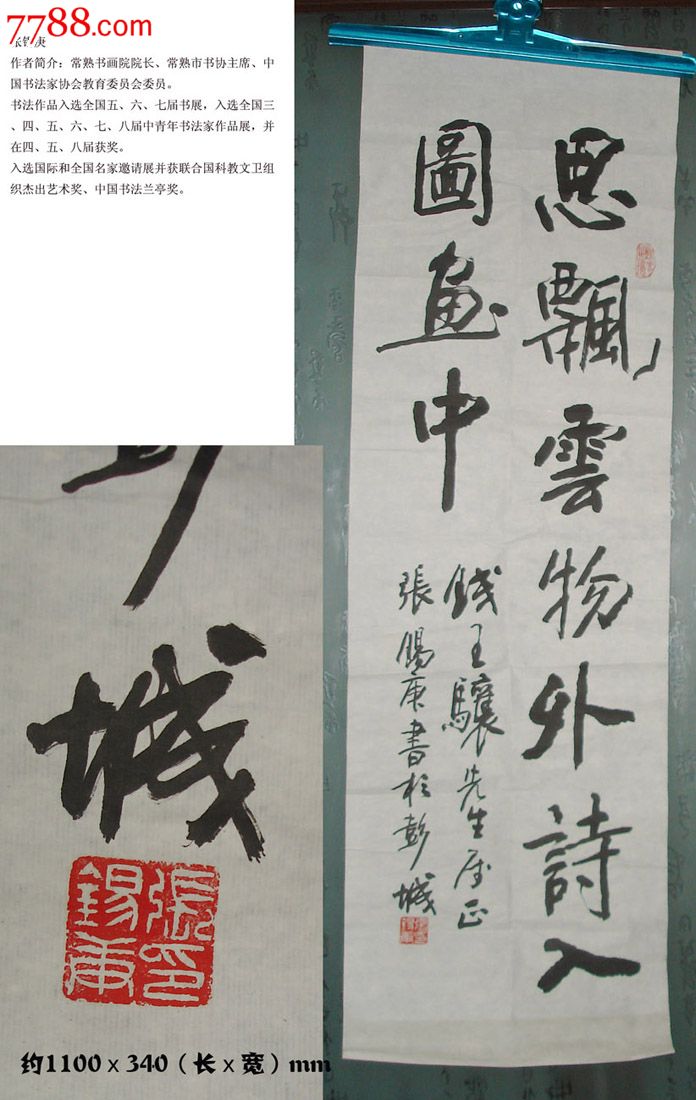 7788.com
张锡庚
作者简介：常熟书画院院长、常熟市书协主席、中
国书法家协会教育委员会委员。
书法作品入选全国五、六、七届书展，入选全国三
、四、五、六、七、八届中青年书法家作品展，并
在四、五、八届获奖。
入选国际和全国名家邀请展并获联合国科教文卫组
织杰出艺术奖、中国书法兰亭奖。
思飄雲物外詩入
圖畫中
錢王驤先生屬正
張錫庚書於彭城
城
張印
錫庚
约1100x340（长x宽）mm